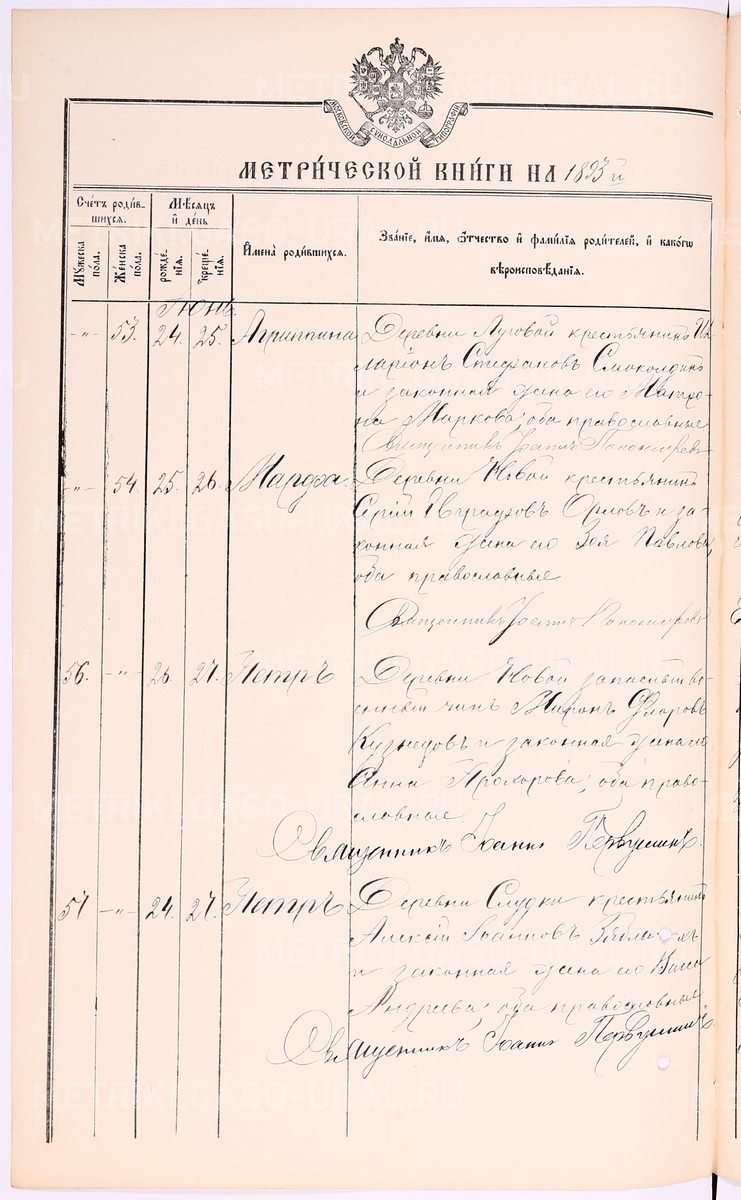 МОСКОВСКОЙ СѴНОДАЛЬНОЙ ТИПОГРАФІИ
МЕТРИ́ЧЕСКОЙ КНИ́ГИ НА 1893 й
Счéтъ роди́в-
шихся.
Мѣ́сяцъ
и́ дéнь
Му́жеска
по́ла.
Же́нска
по́ла.
рожде́-
нія.
креще́-
нія.
И҆мена̀ роди́вшихся.
Зва́ніе, и҆́мя, ѻ҆́тчество и҆ фами́лія роди́телей, и҆ како́гѡ
вѣроисповѣ́данія.
Іюнь
-"- 53. 24. 25. Агриппина Деревни Луговой крестьянинъ Ил
ларіонъ Стефановъ
и законная жена его Матро-
на Маркова, оба православные
Священникъ Іоаннъ Пономаревъ
-"- 54. 25. 26. Марфа. Деревни Новой крестьянинъ
Сергій Евграфовъ Орловъ и за-
конная жена его Зоя Павлова,
оба православные
Священникъ Іоаннъ Пономаревъ
56. -"- 26. 27. Петръ Деревни Новой запасный во-
енный чинъ Миронъ Флоровъ
Кузнецовъ и законная жена его
Анна Прохорова, оба право-
славные
Священникъ Іоаннъ Первушинъ.
57 -"- 24. 27. Петръ Деревни Слудки крестьянинъ
Алексій Іоанновъ
и законная жена его
Андреева, оба православные
Священникъ Іоаннъ Первушинъ.
METRIKI.GASO-URAL.RU